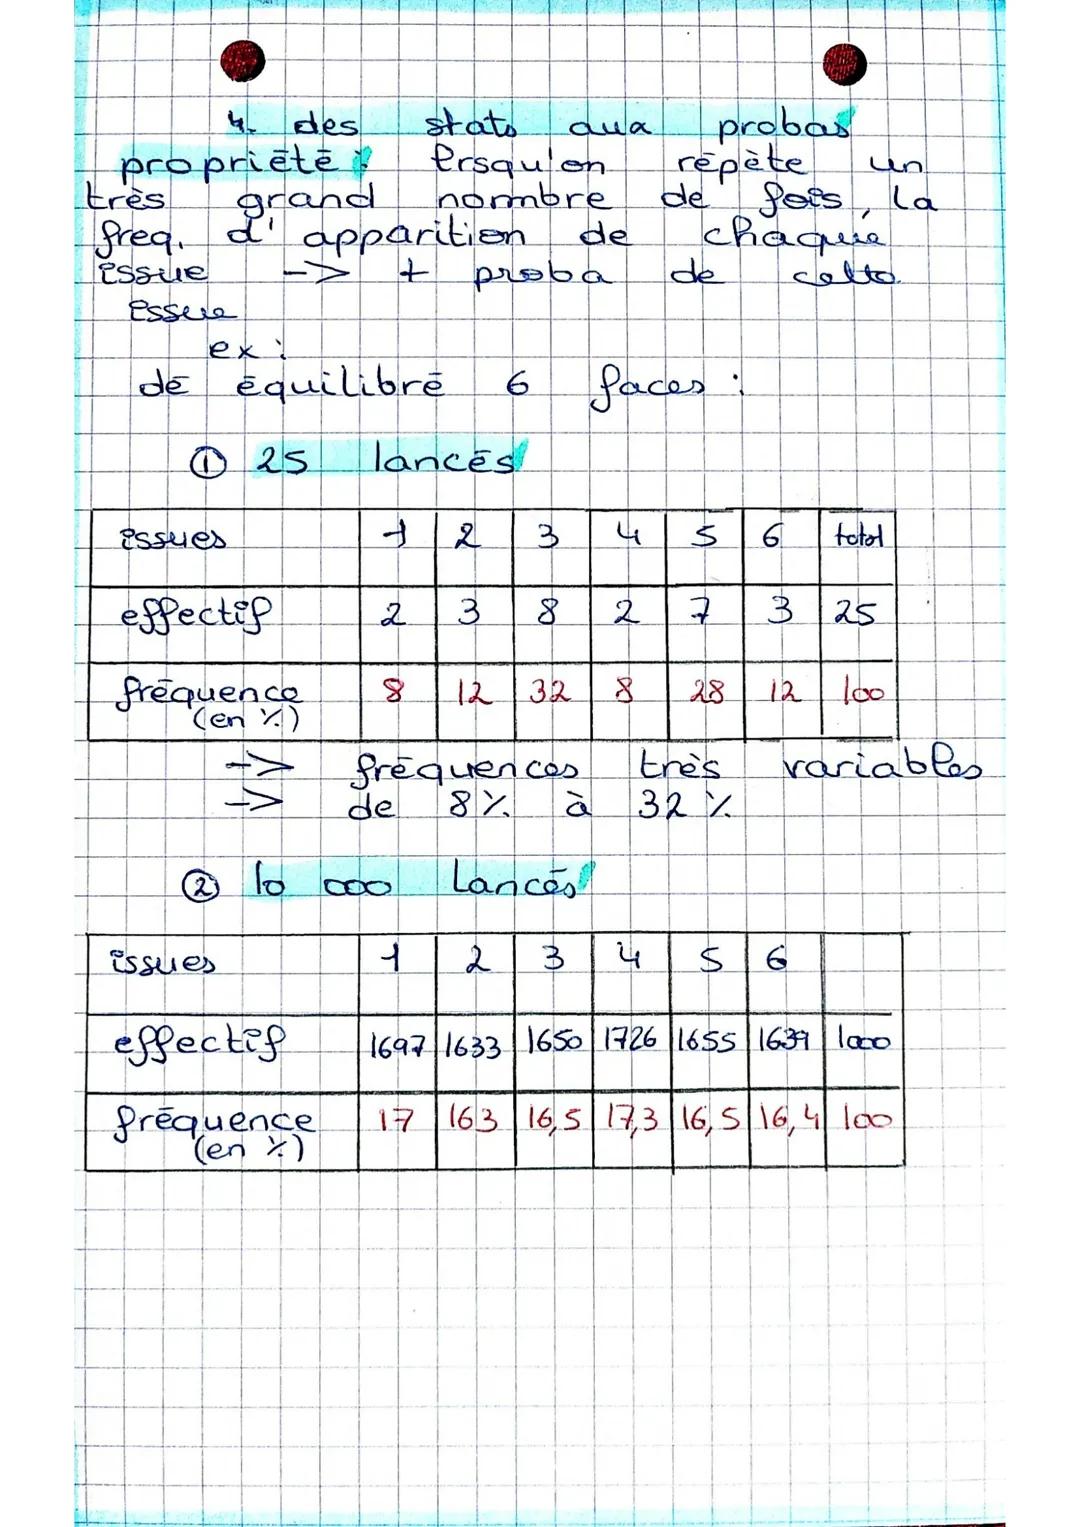 4. des stats aux probas
propriété : lorsqu'on répète un
très grand nombre de fois, la
freq. d'apparition de chaque
issue -> + proba de cette
issue
ex :
dé équilibré 6 faces :
① 25 lancés
issues 1 2 3 4 5 6 total
effectif 2 3 8 2 7 3 25
fréquence 8 12 32 8 28 12 100
(en %)
-> fréquences très variables
-> de 8% à 32 %
② 10 000 lancés
issues 1 2 3 4 5 6
effectif 1697 1633 1650 1726 1655 1639 1000
fréquence 17 163 16,5 17,3 16,5 16,4 100
(en %)